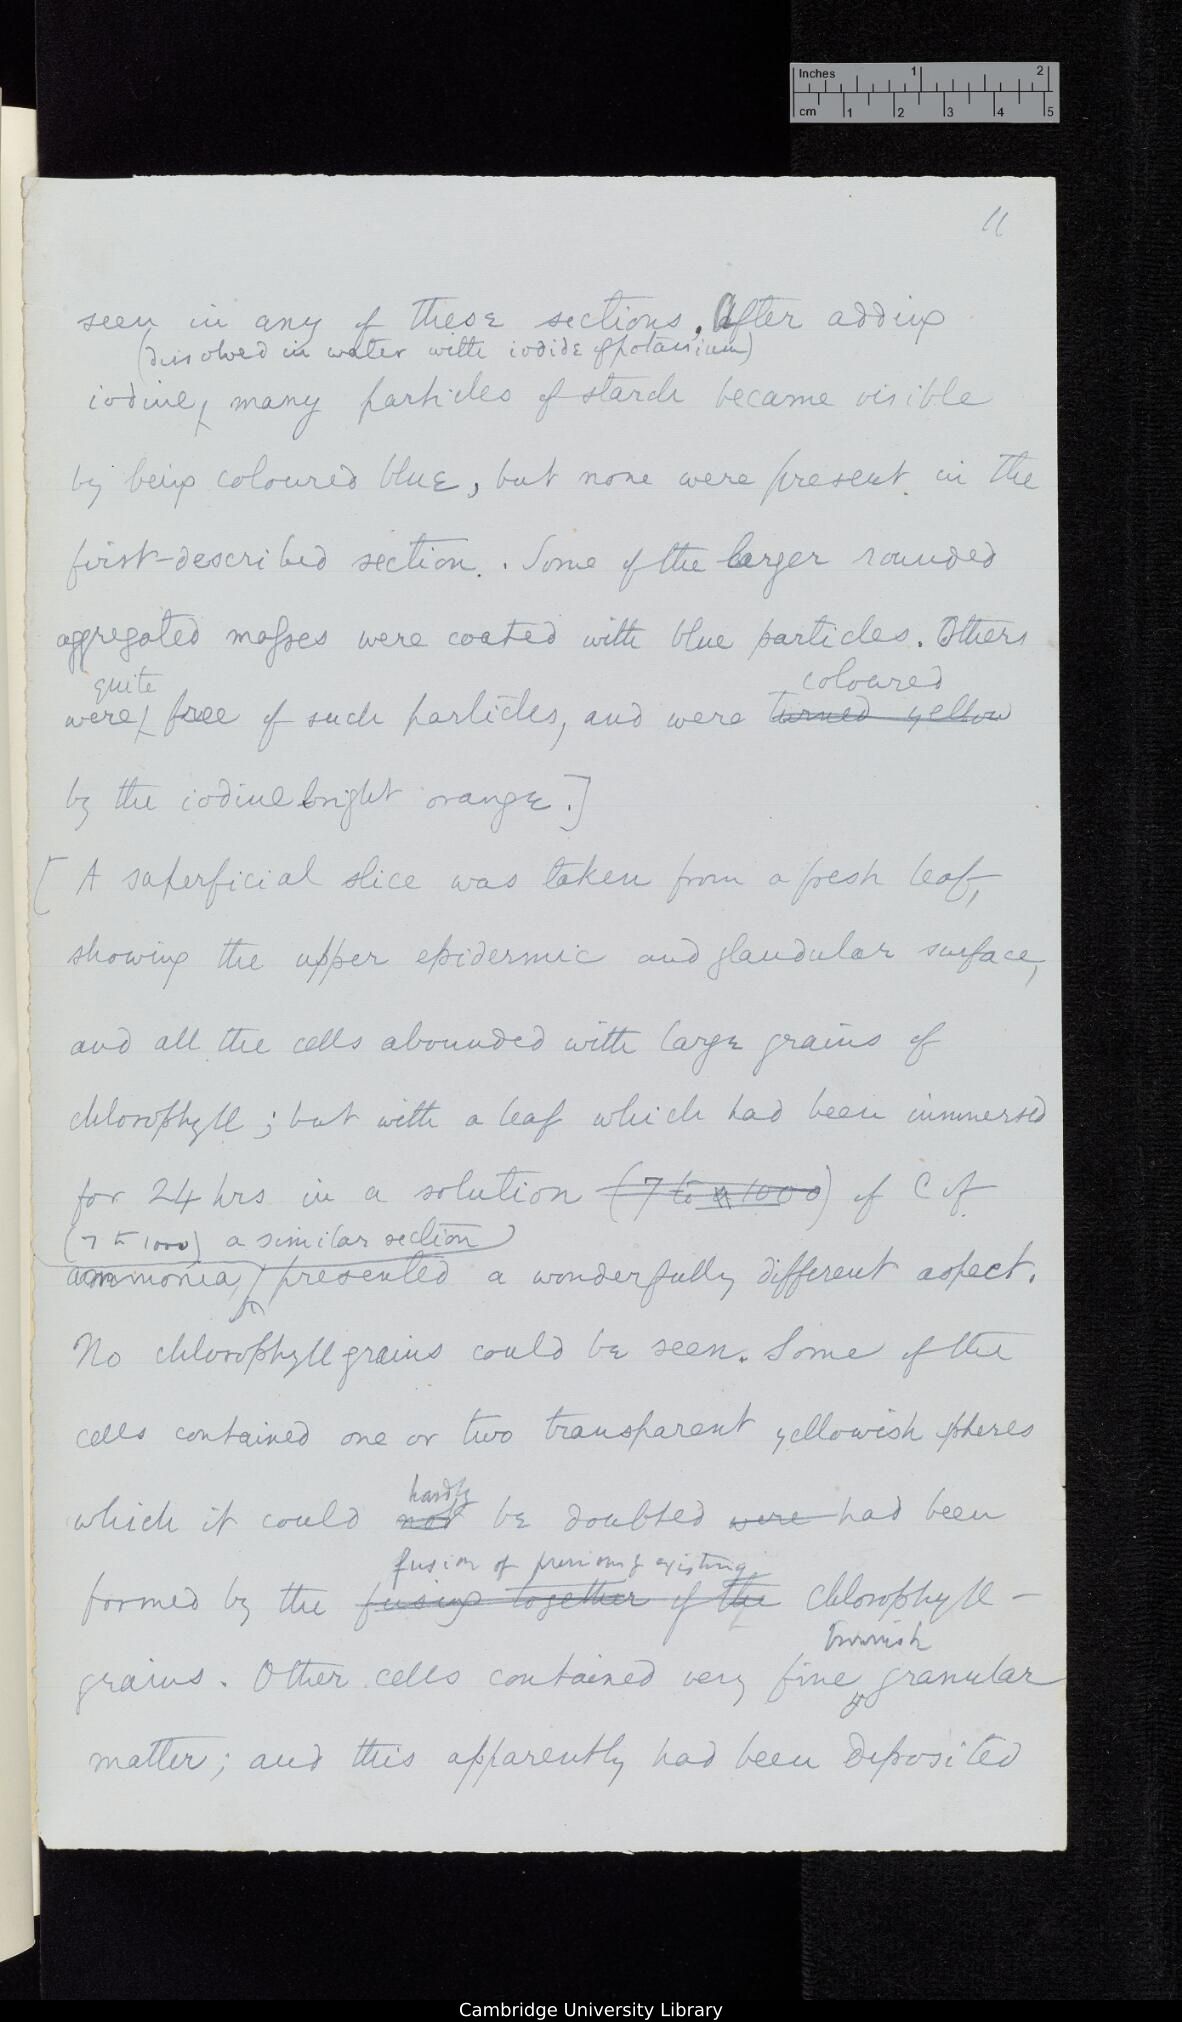 Inches 1 2
cm 1 2 3 4 5
11
seen in any of these sections. After adding
(dissolved in water with iodide of potassium)
iodine, many particles of starch became visible
by being coloured blue, but none were present in the
first-described section. Some of the larger rounded
aggregated masses were coated with blue particles. Others
quite
coloured
were free of such particles, and were turned yellow
by the iodine bright orange.]
[A superficial slice was taken from a fresh leaf,
showing the upper epidermic and glandular surface,
and all the cells abounded with large grains of
chlorophyll; but with a leaf which had been immersed
for 24 hrs in a solution (7 to 1000) of C of
(7 to 1000) a similar section
ammonia, presented a wonderfully different aspect.
No chlorophyll grains could be seen. Some of the
cells contained one or two transparent yellowish spheres
hardly
which it could not be doubted were had been
fusion of previously existing
formed by the fusing together of the chlorophyll-
brownish
grains. Other cells contained very fine granular
matter; and this apparently had been deposited
Cambridge University Library